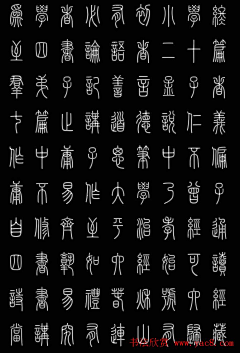 為學者必有初小學終
至四書論語者二十篇
羣弟子記善言孟子者
七篇止講道德說仁義
作中庸子思筆中不偏
庸不易作大學乃曾子
自修齊至平治孝經通
四書熟如六經始可讀
詩書易禮春秋號六經
當講究有連山有歸藏
书法欣赏